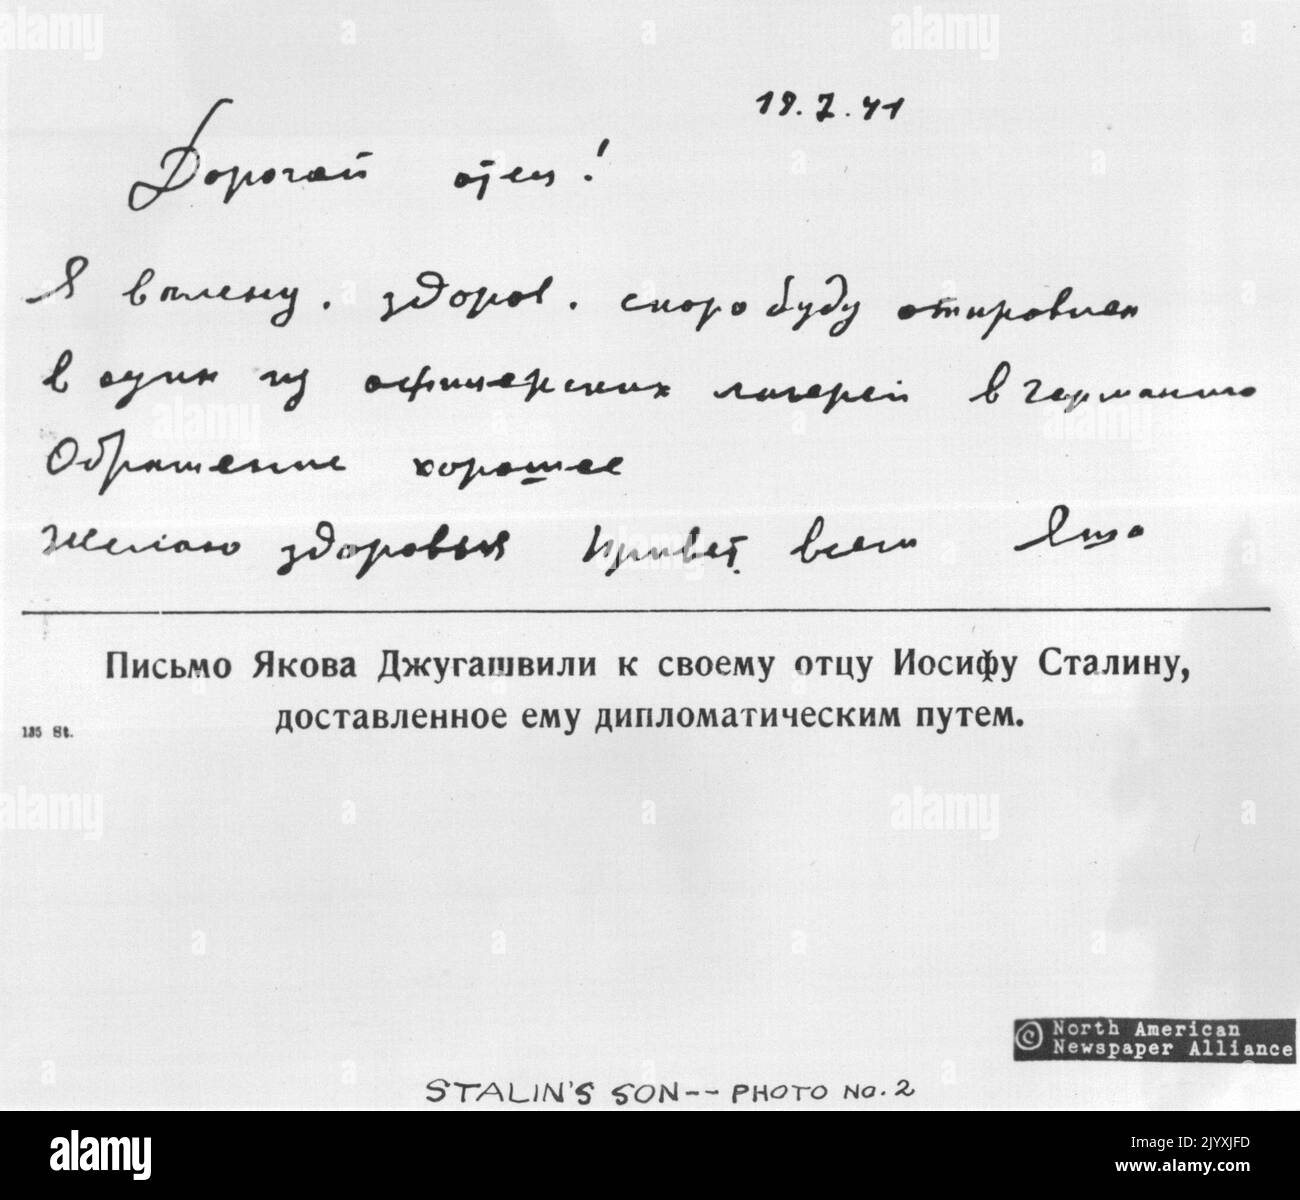 19.7.41
Дорогой отец!
Я в плену. здоров. скоро буду отправлен
в один из офицерских лагерей в Германию
Обращение хорошее
желаю здоровья Привет всем Яша
Письмо Якова Джугашвили к своему отцу Иосифу Сталину,
доставленное ему дипломатическим путем.
135 St.
© North American
Newspaper Alliance
STALIN'S SON-- PHOTO NO. 2
alamy
Image ID: 2JYXJFD
www.alamy.com